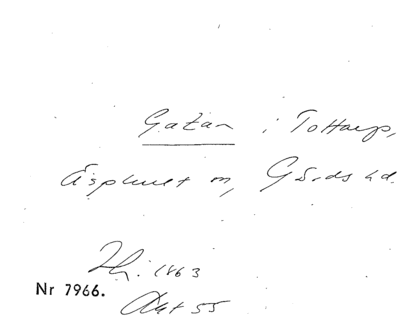 Gatan i Tottarp,
Äsphult m, Gärds hd.
1863
Nr 7966.
Akt 55